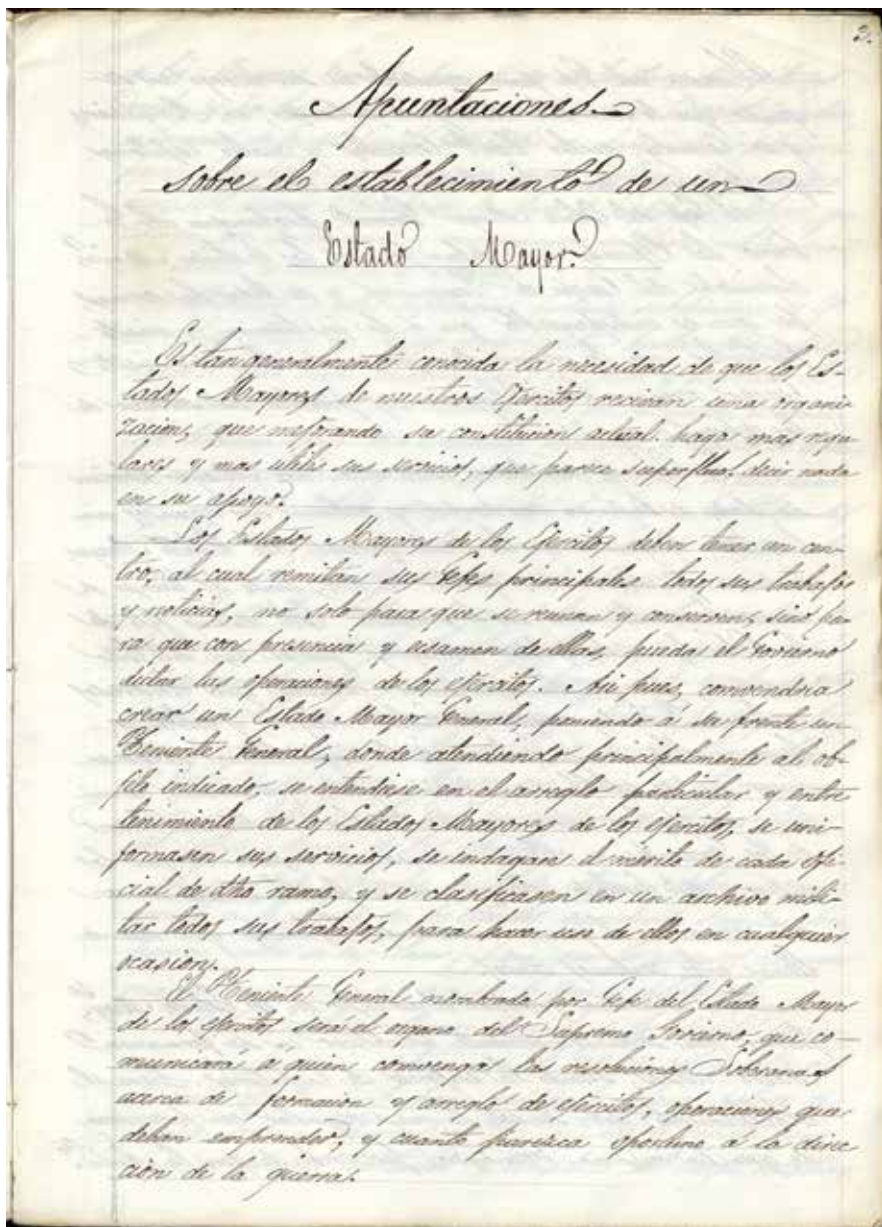 2.
Apuntaciones
sobre el establecimiento de un
Estado Mayor.
Es tan generalmente conocida la necesidad de que los Es-
tados Mayores de nuestros Ejercitos reciban una organi-
zacion, que mejorando su constitucion actual, haga mas regu-
lares y mas utiles sus servicios, que parece superfluo decir nada
en su apoyo.
Los Estados Mayores de los Ejercitos deben tener un cen-
tro, al cual remitan sus Gefes principales todos sus trabajos
y noticias, no solo para que se reunan y conserven, sino pa-
ra que con presencia y ecsamen de ellas, pueda el Govierno
dictar las operaciones de los ejercitos. Asi pues, convendria
crear un Estado Mayor General, poniendo á su frente un
Teniente General, donde atendiendo principalmente al ob-
jeto indicado, se entendiese en el arreglo particular y entre
tenimiento de los Estados Mayores de los ejercitos, se uni-
formasen sus servicios, se indagase el merito de cada ofi-
cial de dho ramo, y se clasificasen en un archivo mili-
tar todos sus trabajos, para hacer uso de ellos en cualquier
ocasion.
El Teniente General nombrado por Gefe del Estado Mayor
de los ejercitos será el organo del Supremo Govierno, que co-
municará á quien convenga las resoluciones Soberanas
acerca de formacion y arreglo de ejercitos, operaciones que
deban emprender, y cuanto parezca oportuno á la direc
cion de la guerra.